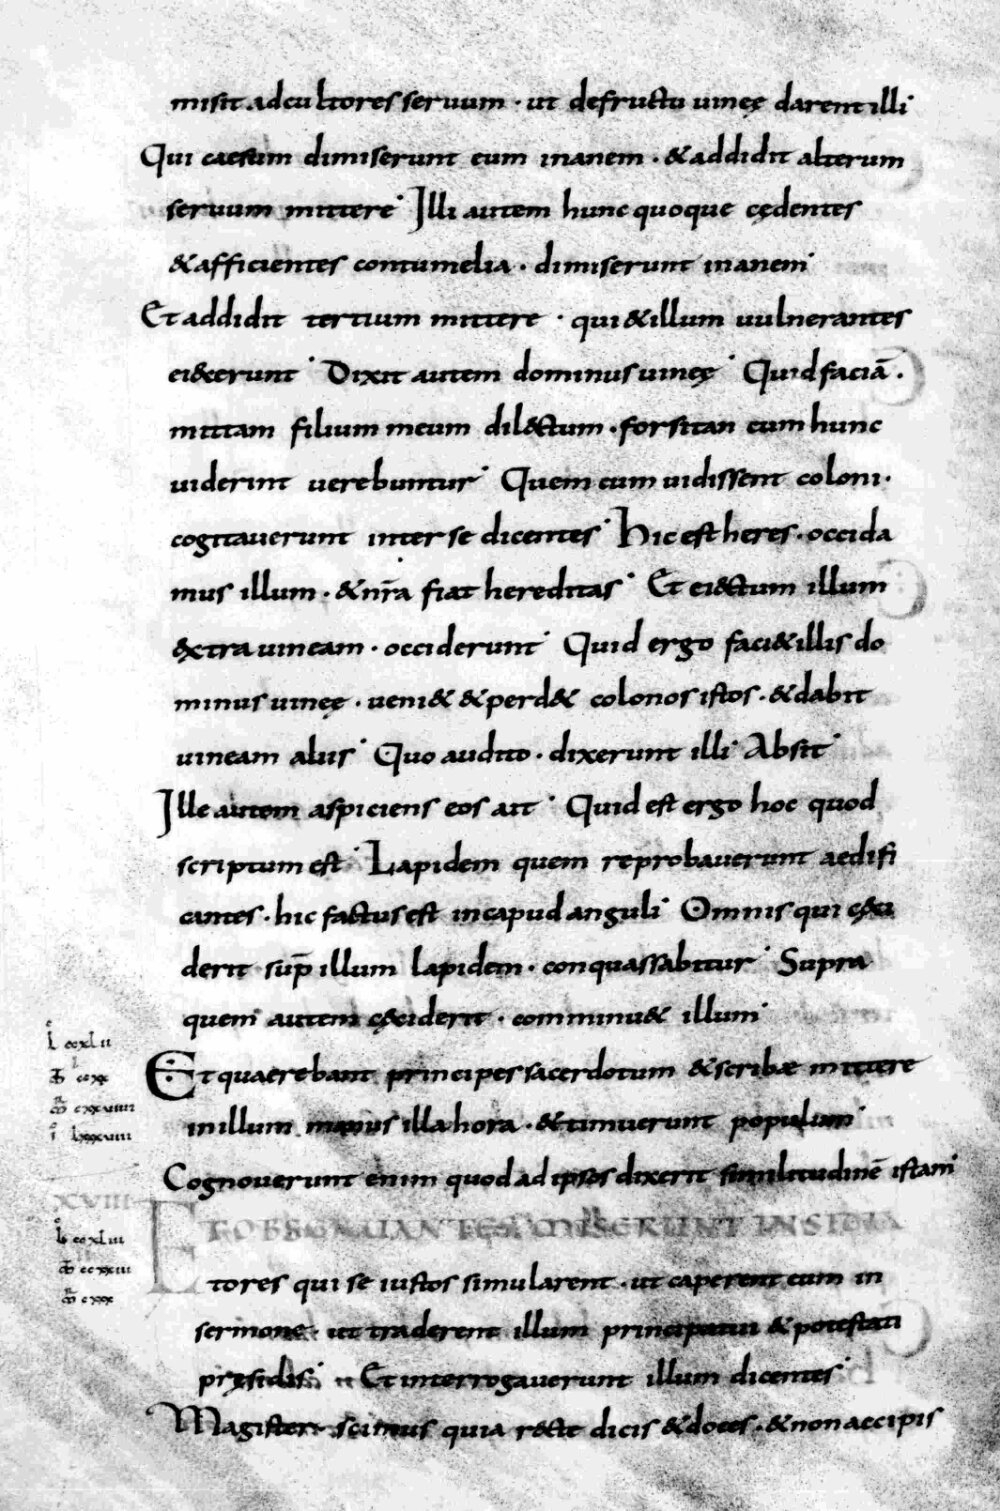 misit ad cultores seruum · ut defructu uineę darent illi
Qui caesum dimiserunt eum inanem · & addidit alterum
seruum mittere Illi autem hunc quoque cędentes
& afficientes contumelia · dimiserunt inanem
Et addidit tertium mittere · qui & illum uulnerantes
eiecerunt Dixit autem dominus uineę Quid faciā ·
mittam filium meum dilectum · forsitan cum hunc
uiderint uerebuntur Quem cum uidissent coloni ·
cogitauerunt inter se dicentes Hic est heres · occida
mus illum · & nr̄a fiat hereditas Et eiectum illum
extra uineam · occiderunt Quid ergo faci& illis do
minus uineę · ueni& & perd& colonos istos · & dabit
uineam aliis Quo audito · dixerunt illi Absit
Ille autem aspiciens eos ait Quid est ergo hoc quod
scriptum est Lapidem quem reprobauerunt aedifi
cantes · hic factus est in caput anguli Omnis qui cęci
derit sup̄ illum lapidem · conquassabitur Supra
quem autem cęciderit · comminu& illum
L ccxLii
Et quaerebant principes sacerdotum & scribæ mittere
in illum manus illa hora · & timuerunt populum
Cognouerunt enim quod ad ipsos dixerit similitudinē istam
XVIII
ET OBSERUANTES MISERUNT INSIDIA
L ccxLiii
tores qui se iustos simularent · ut caperent eum in
sermone · ut traderent illum principatui & potestati
pręsidis Et interrogauerunt illum dicentes
Magister scimus quia recte dicis & doces · & non accipis